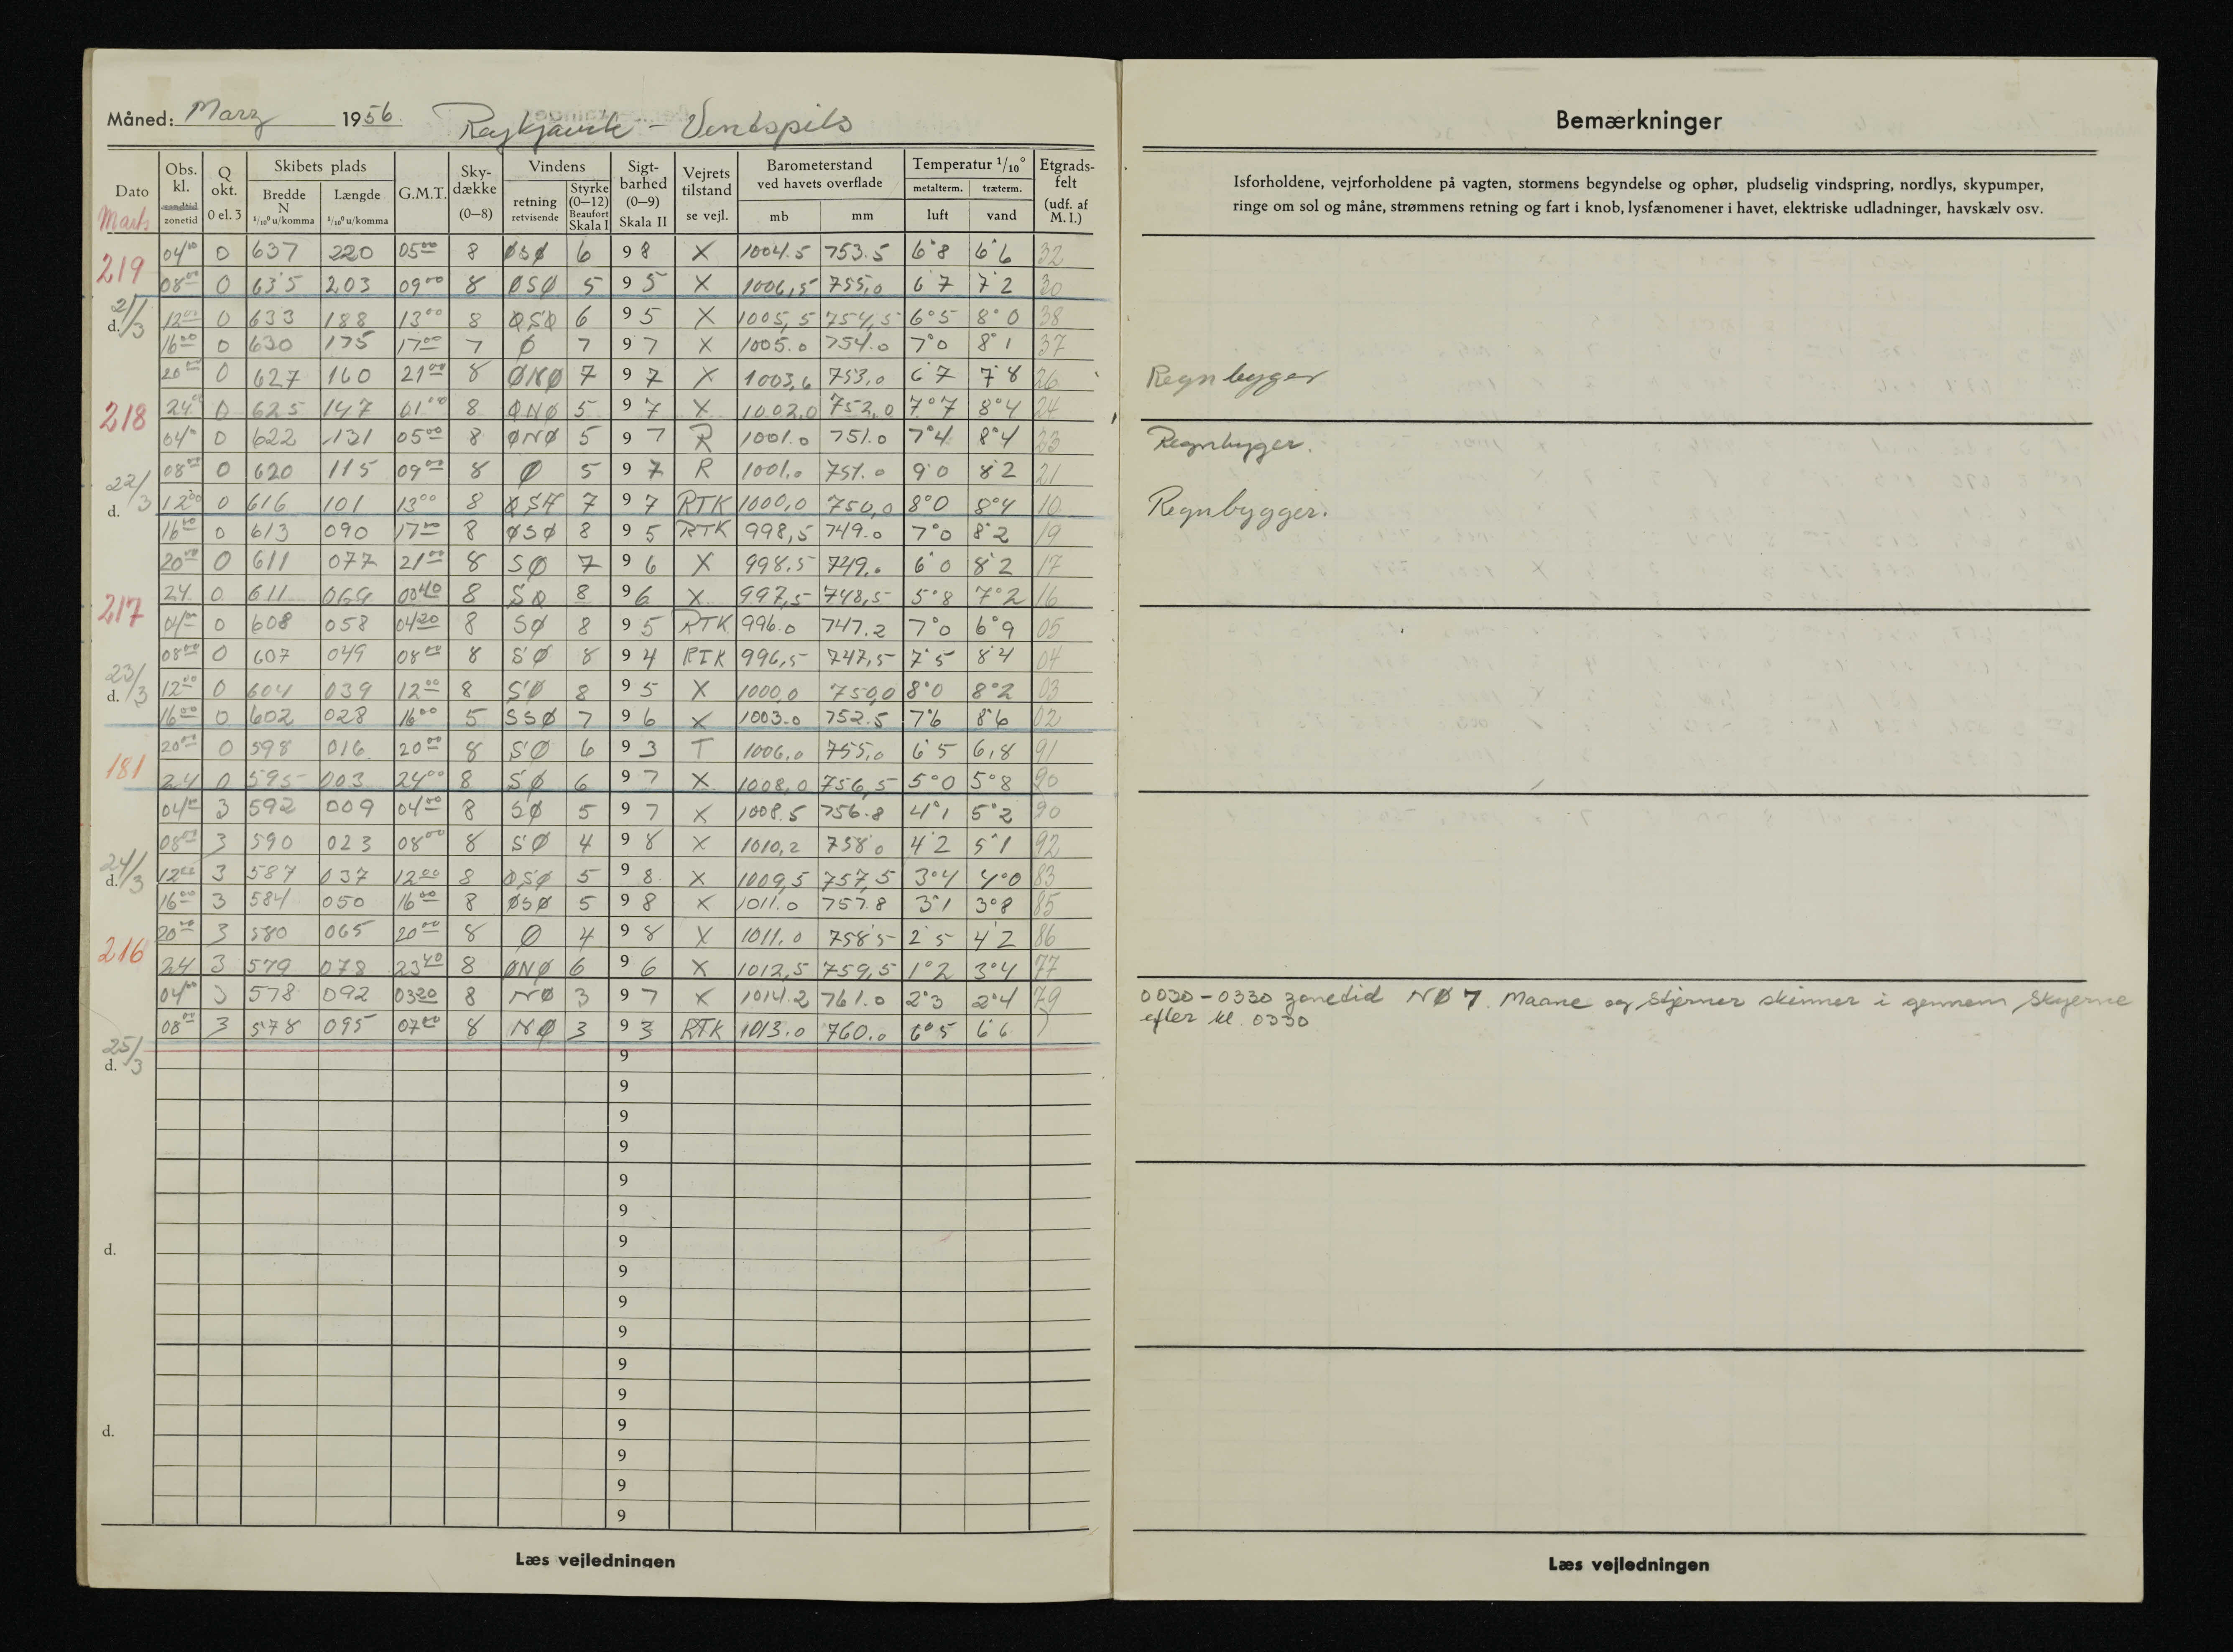 Måned: Marz 1956. Reykjavik - Ventspils
Dato Obs. kl. zonetid Q okt. 0 el. 3 Skibets plads Bredde N 1/10° u/komma Længde 1/10° u/komma G.M.T. Sky-dække (0—8) Vindens retning retvisende Styrke (0—12) Beaufort Skala I Sigt-barhed (0—9) Skala II Vejrets tilstand se vejl. Barometerstand ved havets overflade mb mm Temperatur 1/10° metalterm. luft træterm. vand Etgrads-felt (udf. af M. I.)
Marts
04 00 0 637 220 05 00 8 ØSØ 6 9 8 X 1004.5 753.5 6°8 6°6 32
219
08 00 0 635 203 09 00 8 ØSØ 5 9 5 X 1006,5 755,0 6°7 7°2 30
d. 21/3 12 00 0 633 188 13 00 8 ØSØ 6 9 5 X 1005,5 754,5 6°5 8°0 38
16 00 0 630 175 17 00 7 Ø 7 9 7 X 1005.0 754.0 7°0 8°1 37
20 00 0 627 160 21 00 8 ØNØ 7 9 7 X 1003,6 753,0 6°7 7°8 26
218 24 00 0 625 147 01 00 8 ØNØ 5 9 7 X 1002,0 752,0 7°7 8°4 24
04 00 0 622 131 05 00 8 ØNØ 5 9 7 R 1001.0 751.0 7°4 8°4 23
08 00 0 620 115 09 00 8 Ø 5 9 7 R 1001.0 751.0 9°0 8°2 21
d. 22/3 12 00 0 616 101 13 00 8 ØSØ 7 9 7 RTK 1000,0 750,0 8°0 8°4 10
16 00 0 613 090 17 00 8 ØSØ 8 9 5 RTK 998,5 749.0 7°0 8°2 19
20 00 0 611 077 21 00 8 SØ 7 9 6 X 998.5 749.0 6°0 8°2 17
217 24 0 611 069 00 40 8 SØ 8 9 6 X 997,5 748,5 5°8 7°2 16
04 00 0 608 058 04 20 8 SØ 8 9 5 RTK 996.0 747.2 7°0 6°9 05
08 00 0 607 049 08 00 8 SØ 8 9 4 RTK 996,5 747,5 7°5 8°4 04
d. 23/3 12 00 0 604 039 12 00 8 SØ 8 9 5 X 1000,0 750,0 8°0 8°2 03
16 00 0 602 028 16 00 5 SSØ 7 9 6 X 1003.0 752.5 7°6 8°6 02
20 00 0 598 016 20 00 8 SØ 6 9 3 T 1006,0 755,0 6°5 6,8 91
181 24 0 595 003 24 00 8 SØ 6 9 7 X 1008,0 756,5 5°0 5°8 90
04 00 3 592 009 04 00 8 SØ 5 9 7 X 1008.5 756.8 4°1 5°2 90
08 00 3 590 023 08 00 8 SØ 4 9 8 X 1010,2 758.0 4°2 5°1 92
d. 24/3 12 00 3 587 037 12 00 8 ØSØ 5 9 8 X 1009,5 757,5 3°4 4°0 83
16 00 3 584 050 16 00 8 ØSØ 5 9 8 X 1011.0 757.8 3°1 3°8 85
20 00 3 580 065 20 00 8 Ø 4 9 8 X 1011.0 758 5 2°5 4°2 86
216 24 3 579 078 23 40 8 ØNØ 6 9 6 X 1012,5 759,5 1°2 3°4 77
04 00 3 578 092 03 20 8 NØ 3 9 7 X 1014.2 761.0 2°3 2°4 79
08 00 3 578 095 07 00 8 NØ 3 9 3 RTK 1013.0 760.0 6°5 6°6
d. 25/3 9
9
9
9
9
9
d. 9
9
9
9
9
9
d. 9
9
9
9
Læs vejledningen
Bemærkninger
Isforholdene, vejrforholdene på vagten, stormens begyndelse og ophør, pludselig vindspring, nordlys, skypumper,
ringe om sol og måne, strømmens retning og fart i knob, lysfænomener i havet, elektriske udladninger, havskælv osv.
Regnbyger
Regnbyger.
Regnbygger.
0030-0330 zonetid NØ 7. Maane og Stjerner skinner i gennem Skyerne
efter kl. 0330
Læs vejledningen